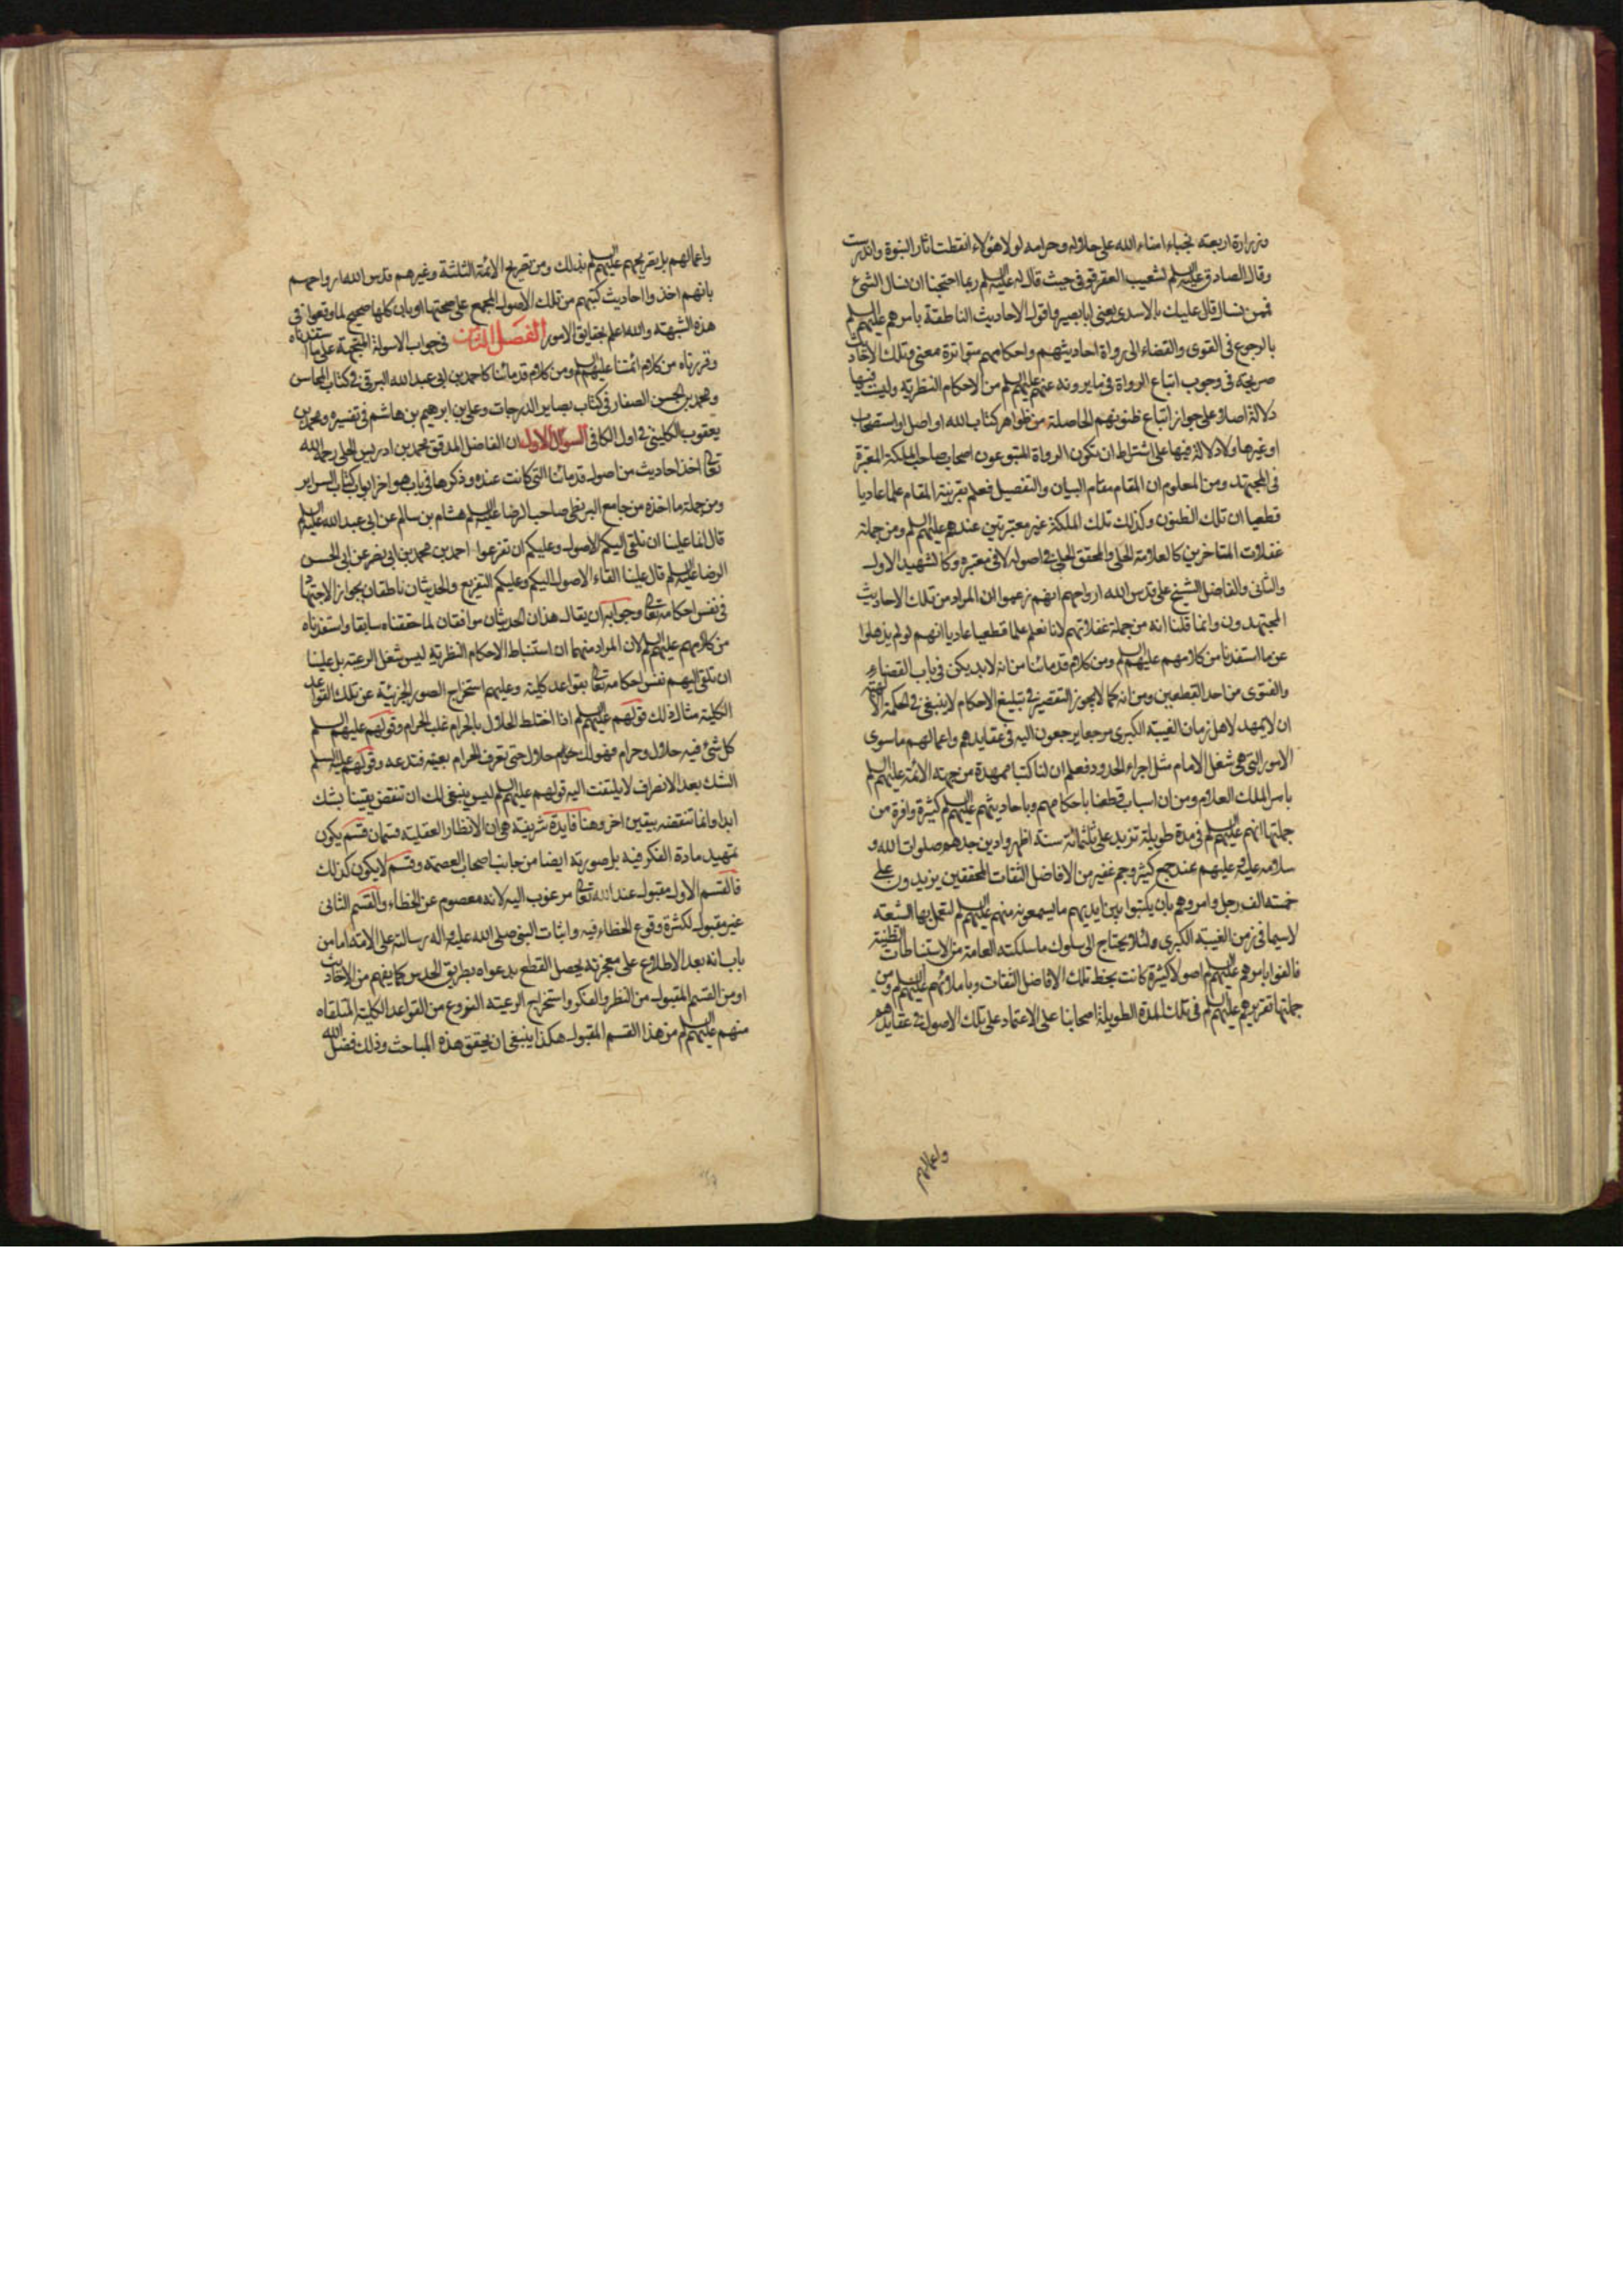 وزرارة اربعة نجباء امناء الله على حلاله وحرامه لولا هؤلاء انقطعت اثار النبوة واندرست
وقال الصادق عليه السلم لشعيب العقرقوفي حيث قال له عليه السلم ربما احتجنا ان نسال الشئ
فمن نسال قال عليك بالاسدي يعني ابا بصير واقول الاحاديث الناطقة بامرهم عليهم السلم
بالرجوع في الفتوى والقضاء الى رواة احاديثهم واحكامهم متواترة معنى وتلك الاحاديث
صريحة في وجوب اتباع الرواة في ما يروونه عنهم عليهم السلم من الاحكام النظرية وليست فيها
دلالة اصلا على جواز اتباع ظنونهم الحاصلة من ظواهر كتاب الله او اصل او استصحاب
او غيرها ولا دلالة فيها على اشتراط ان تكون الرواة المتبوعون اصحاب صاحب الملكة المعتبرة
في المجتهد ومن المعلوم ان المقام مقام البيان والتفصيل فعلم بقرينة المقام علما عاديا
قطعيا ان تلك الظنون وكذلك تلك الملكة غير معتبرتين عندهم عليهم السلم ومن جملة
غفلات المتاخرين كالعلامة الحلي والمحقق الحلي في اصوله لا في معتبره وكالشهيد الاول
والثاني والفاضل الشيخ علي قدس الله ارواحهم انهم زعموا ان المراد من تلك الاحاديث
المجتهدون وانما قلنا انه من جملة غفلاتهم لانا نعلم علما قطعيا عاديا انهم لو لم يذهلوا
عن ما استفدنا من كلامهم عليهم السلم ومن كلام قدمائنا من انه لا بد يكن في باب القضاء
والفتوى من احد القطعيين ومن انه كما لا يجوز التقصير في تبليغ الاحكام لا ينبغي في الحكمة الالهية
ان لا يمهد لاهل زمان الغيبة الكبرى مرجعا يرجعون اليه في عقايدهم واعمالهم ما سوى
الامور التي هي شغل الامام مثل اجراء الحدود فعلم ان لنا كتبا ممهدة من جهة الائمة عليهم السلم
بامر الملك العلام ومن ان اسباب قطعنا باحكامهم وباحاديثهم عليهم السلم كثيرة وافرة من
جملتها انهم عليهم السلم في مدة طويلة تزيد على ثلثمائة سنة اظهروا دين جدهم صلوات الله و
سلامه عليه وعليهم عند جمع كثير وجم غفير من الافاضل الثقات المحققين يزيدون على
خمسة الف رجل وامروهم بان يكتبوا بين ايديهم ما يسمعونه منهم عليهم السلم لتعمل بها الشيعة
لاسيما في زمن الغيبة الكبرى ولئلا يحتاج الى سلوك ما سلكته العامة من الاستنباطات الظنية
فالفوا بامرهم عليهم السلم اصولا كثيرة كانت بخط تلك الافاضل الثقات وباملائهم عليهم السلم ومن
جملتها تقريرهم عليهم السلم في تلك المدة الطويلة اصحابنا على الاعتماد على تلك الاصول في عقايدهم
واعمالهم
واعمالهم بل تصريحهم عليهم السلم بذلك ومن تصريح الائمة الثلثة وغيرهم قدس الله ارواحهم
بانهم اخذوا احاديث كتبهم من تلك الاصول المجمع على صحتها او بان كلها صحيح لما وقعوا في
هذه الشبهة والله اعلم بحقايق الامور الفصل الثامن في جواب الاسولة المتجهة على ما استفدناه
وقررناه من كلام ائمتنا عليهم السلم ومن كلام قدمائنا كاحمد بن ابي عبد الله البرقي في كتاب المحاسن
ومحمد بن الحسن الصفار في كتاب بصاير الدرجات وعلي بن ابرهيم بن هاشم في تفسيره ومحمد بن
يعقوب الكليني في اول الكافي السؤال الاول ان الفاضل المدقق محمد بن ادريس الحلي رحمه الله
تعالى اخذ احاديث من اصول قدمائنا التي كانت عنده وذكرها في باب هو اخر ابواب كتاب السراير
ومن جملة ما اخذه من جامع البزنطي صاحب الرضا عليه السلم هشام بن سالم عن ابي عبد الله عليه السلم
قال انما علينا ان نلقي اليكم الاصول وعليكم ان تفرعوا احمد بن محمد بن ابي نصر عن ابي الحسن
الرضا عليه السلم قال علينا القاء الاصول اليكم وعليكم التفريع والحديثان ناطقان بجواز الاجتهاد
في نفس احكامه تعالى وجوابه ان يقال هذان الحديثان موافقان لما حققناه سابقا واستفدناه
من كلامهم عليهم السلم لان المراد منهما ان استنباط الاحكام النظرية ليس شغل الرعية بل علينا
ان نلقي اليهم نفس احكامه تعالى بقواعد كلية وعليهم استخراج الصور الجزئية عن تلك القواعد
الكلية مثال ذلك قولهم عليهم السلم اذا اختلط الحلال بالحرام غلب الحرام وقولهم عليهم السلم
كل شئ فيه حلال وحرام فهو لك حلال حتى تعرف الحرام بعينه فتدعه وقولهم عليه السلم
الشك بعد الانصراف لا يلتفت اليه قولهم عليهم السلم ليس ينبغي لك ان تنقض يقينا بشك
ابدا وانما تنقضه بيقين اخر وهنا فايدة شريفة هي ان الانظار العقلية قسمان قسم يكون
تمهيد مادة الفكر فيه بل صورته ايضا من جانب اصحاب العصمة وقسم لا يكون كذلك
فالقسم الاول مقبول عند الله تعالى مرغوب اليه لانه معصوم عن الخطاء والقسم الثاني
غير مقبول لكثرة وقوع الخطاء فيه واثبات النبي صلى الله عليه واله رسالته على الامة اما من
باب انه بعد الاطلاع على معجزته يحصل القطع بدعواه بطريق الحدس كما يفهم من الاحاديث
او من القسم المقبول من النظر والفكر واستخراج الرعية الفروع من القواعد الكلية المتلقاه
منهم عليهم السلم من هذا القسم المقبول هكذا ينبغي ان يحقق هذه المباحث وذلك فضل الله